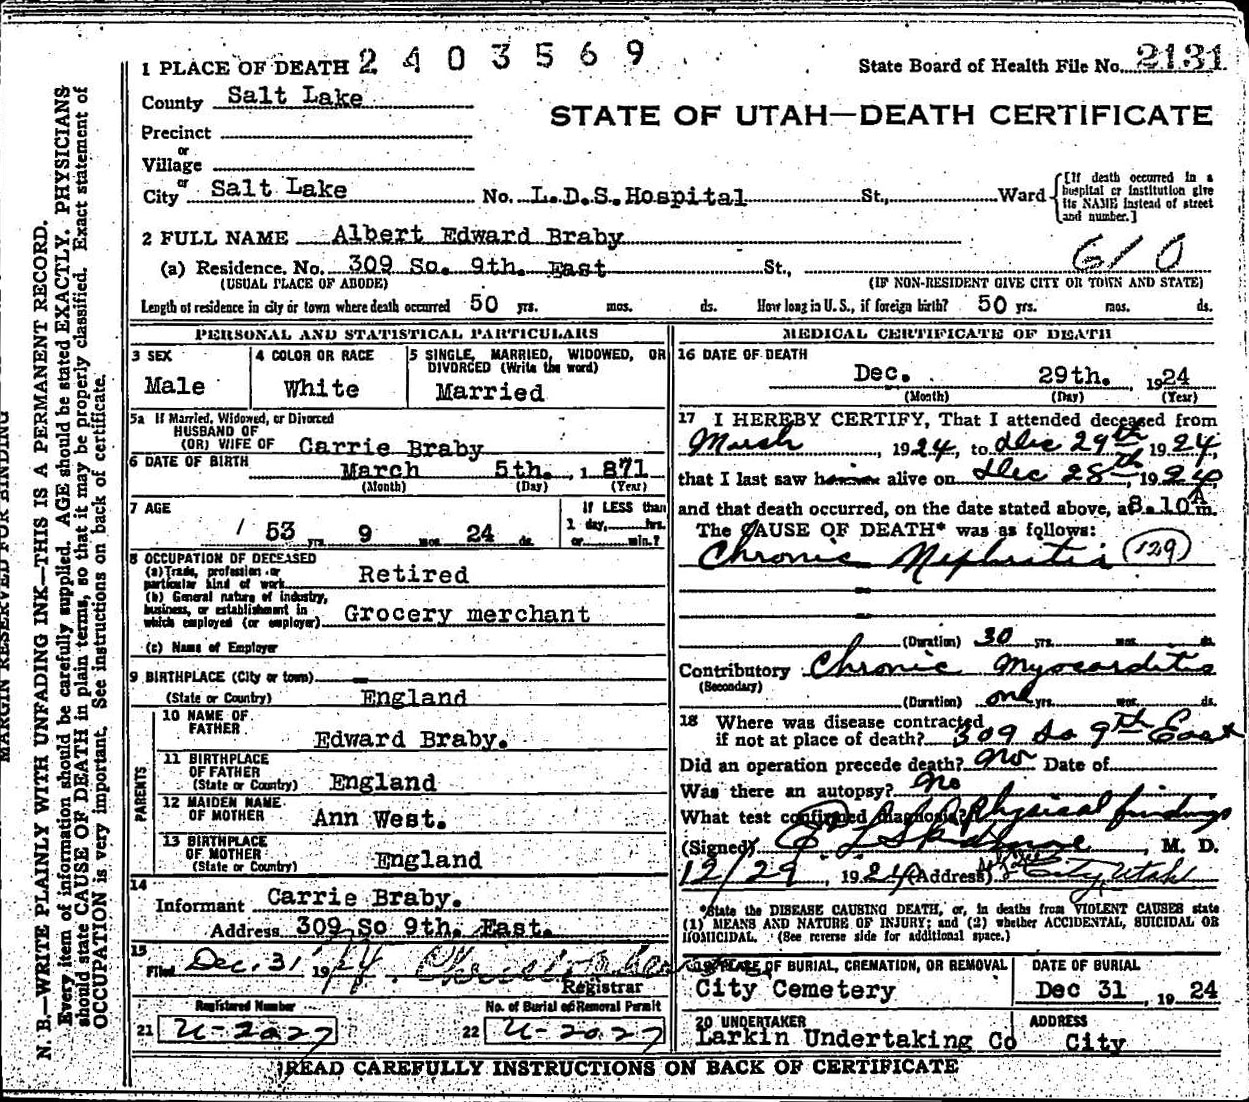 1 PLACE OF DEATH 2 4 0 3 5 6 9
State Board of Health File No. 2131
County Salt Lake
STATE OF UTAH—DEATH CERTIFICATE
Precinct
or
Village
or
City Salt Lake No. L.D.S. Hospital St., Ward
[If death occurred in a hospital or institution give its NAME instead of street and number.]
2 FULL NAME Albert Edward Braby
610
(a) Residence. No. 309 So. 9th. East St.,
(USUAL PLACE OF ABODE) (IF NON-RESIDENT GIVE CITY OR TOWN AND STATE)
Length of residence in city or town where death occurred 50 yrs. mos. ds. How long in U. S., if foreign birth? 50 yrs. mos. ds.
PERSONAL AND STATISTICAL PARTICULARS
3 SEX
Male
4 COLOR OR RACE
White
5 SINGLE, MARRIED, WIDOWED, OR
DIVORCED (Write the word)
Married
5a If Married, Widowed, or Divorced
HUSBAND OF
(OR) WIFE OF Carrie Braby
6 DATE OF BIRTH March 5th. 1871
(Month) (Day) (Year)
7 AGE
53 yrs. 9 mos. 24 ds.
If LESS than
1 day, hrs.
or min.?
8 OCCUPATION OF DECEASED
(a) Trade, profession or
particular kind of work Retired
(b) General nature of industry,
business, or establishment in
which employed (or employer) Grocery merchant
(c) Name of Employer
9 BIRTHPLACE (City or town)
(State or Country) England
PARENTS
10 NAME OF
FATHER Edward Braby.
11 BIRTHPLACE
OF FATHER
(State or Country) England
12 MAIDEN NAME
OF MOTHER Ann West.
13 BIRTHPLACE
OF MOTHER
(State or Country) England
14
Informant Carrie Braby.
Address 309 So 9th. East.
15
Filed Dec. 31 1924
Registrar
Registered Number
21 U-2027
No. of Burial or Removal Permit
22 U-2027
MEDICAL CERTIFICATE OF DEATH
16 DATE OF DEATH
Dec. 29th. 1924
(Month) (Day) (Year)
17 I HEREBY CERTIFY, That I attended deceased from
March, 1924, to Dec 29th 1924,
that I last saw him alive on Dec 28th, 1924
and that death occurred, on the date stated above, at 8.10 A m.
The CAUSE OF DEATH* was as follows:
Chronic Nephritis (129)
(Duration) 30 yrs. mos. ds.
Contributory Chronic Myocarditis
(Secondary)
(Duration) one yrs. mos. ds.
18 Where was disease contracted
if not at place of death? 309 So 9th East
Did an operation precede death? No Date of
Was there an autopsy? No
What test confirmed diagnosis? Physical findings
(Signed) M. D.
12/29, 1924 (Address) City, Utah
*State the DISEASE CAUSING DEATH, or, in deaths from VIOLENT CAUSES state
(1) MEANS AND NATURE OF INJURY; and (2) whether ACCIDENTAL, SUICIDAL OR
HOMICIDAL. (See reverse side for additional space.)
19 PLACE OF BURIAL, CREMATION, OR REMOVAL
City Cemetery
DATE OF BURIAL
Dec 31, 1924
20 UNDERTAKER
Larkin Undertaking Co
ADDRESS
City
READ CAREFULLY INSTRUCTIONS ON BACK OF CERTIFICATE
MARGIN RESERVED FOR BINDING
N. B.—WRITE PLAINLY WITH UNFADING INK—THIS IS A PERMANENT RECORD.
Every item of information should be carefully supplied. AGE should be stated EXACTLY. PHYSICIANS
should state CAUSE OF DEATH in plain terms, so that it may be properly classified. Exact statement of
OCCUPATION is very important. See instructions on back of certificate.